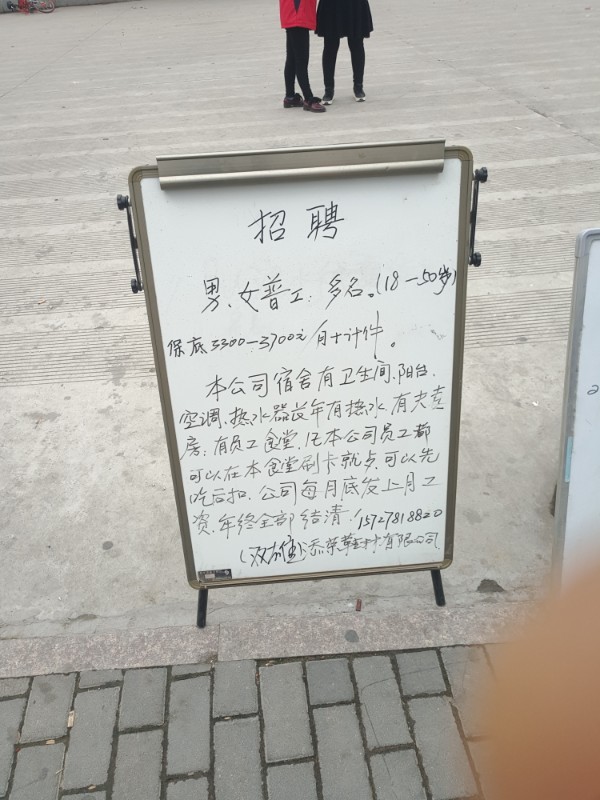 招聘
男、女普工：多名。(18—50岁)
保底3300—3700元/月+计件。
本公司宿舍有卫生间、阳台、
空调、热水器长年有热水、有夫妻
房、有员工食堂、凡本公司员工都
可以在本食堂刷卡就点、可以先
吃后扣、公司每月底发上月工
资、年终全部结清、15727818820
(双雄)添荣鞋材有限公司